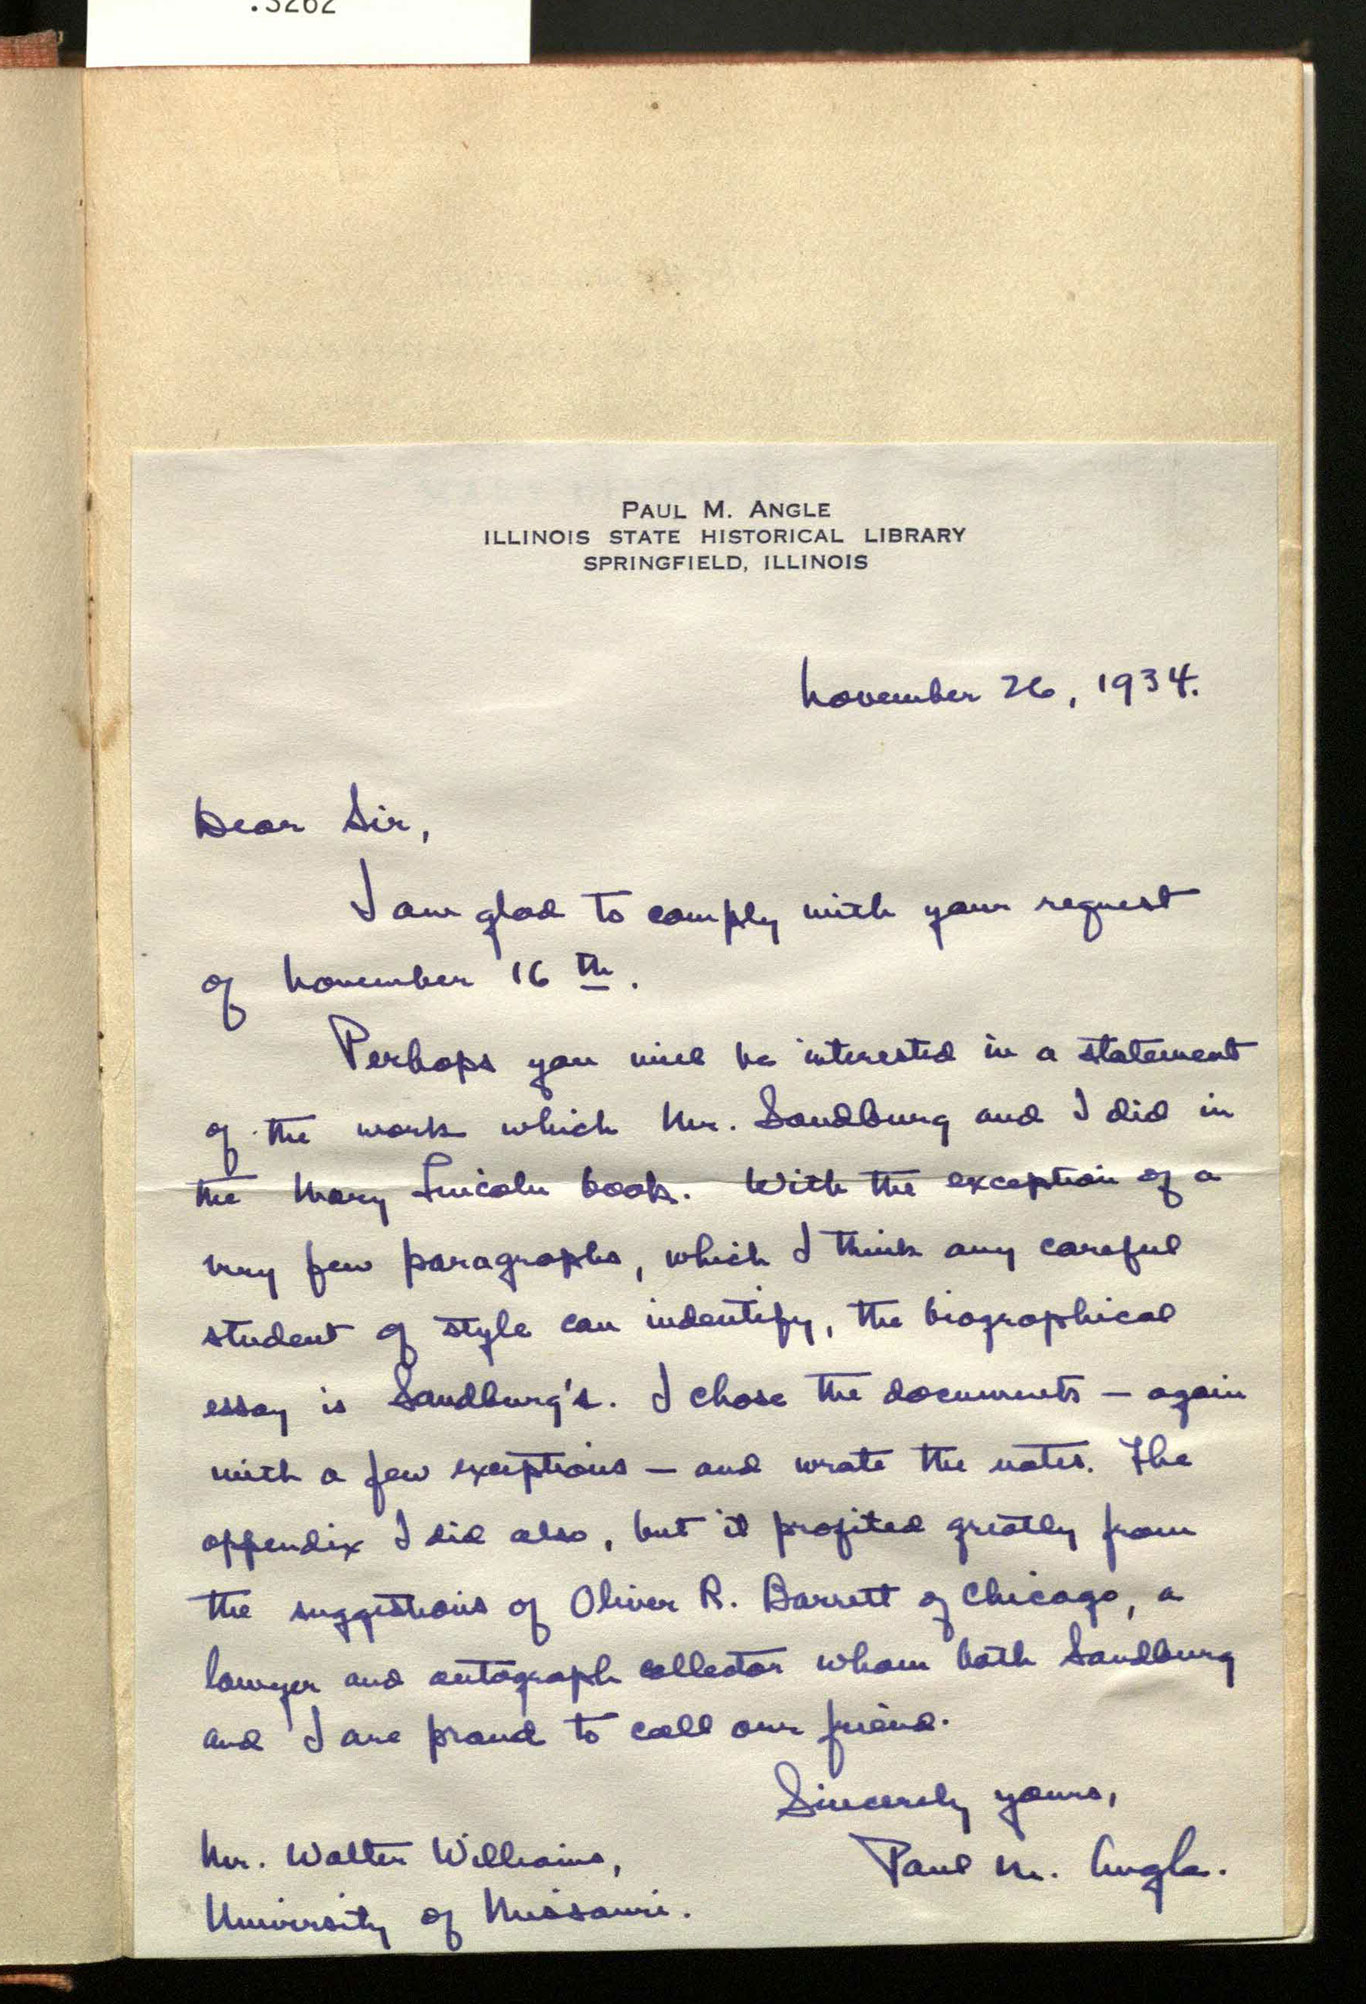 .3262
PAUL M. ANGLE
ILLINOIS STATE HISTORICAL LIBRARY
SPRINGFIELD, ILLINOIS
November 26, 1934.
Dear Sir,
I am glad to comply with your request
of November 16th.
Perhaps you will be interested in a statement
of the work which Mr. Sandburg and I did in
the Mary Lincoln book. With the exception of a
very few paragraphs, which I think any careful
student of style can indentify, the biographical
essay is Sandburg's. I chose the documents — again
with a few exceptions — and wrote the notes. The
appendix I did also, but it profited greatly from
the suggestions of Oliver R. Barrett of Chicago, a
lawyer and autograph collector whom both Sandburg
and I are proud to call our friend.
Sincerely yours,
Paul M. Angle.
Mr. Walter Williams,
University of Missouri.